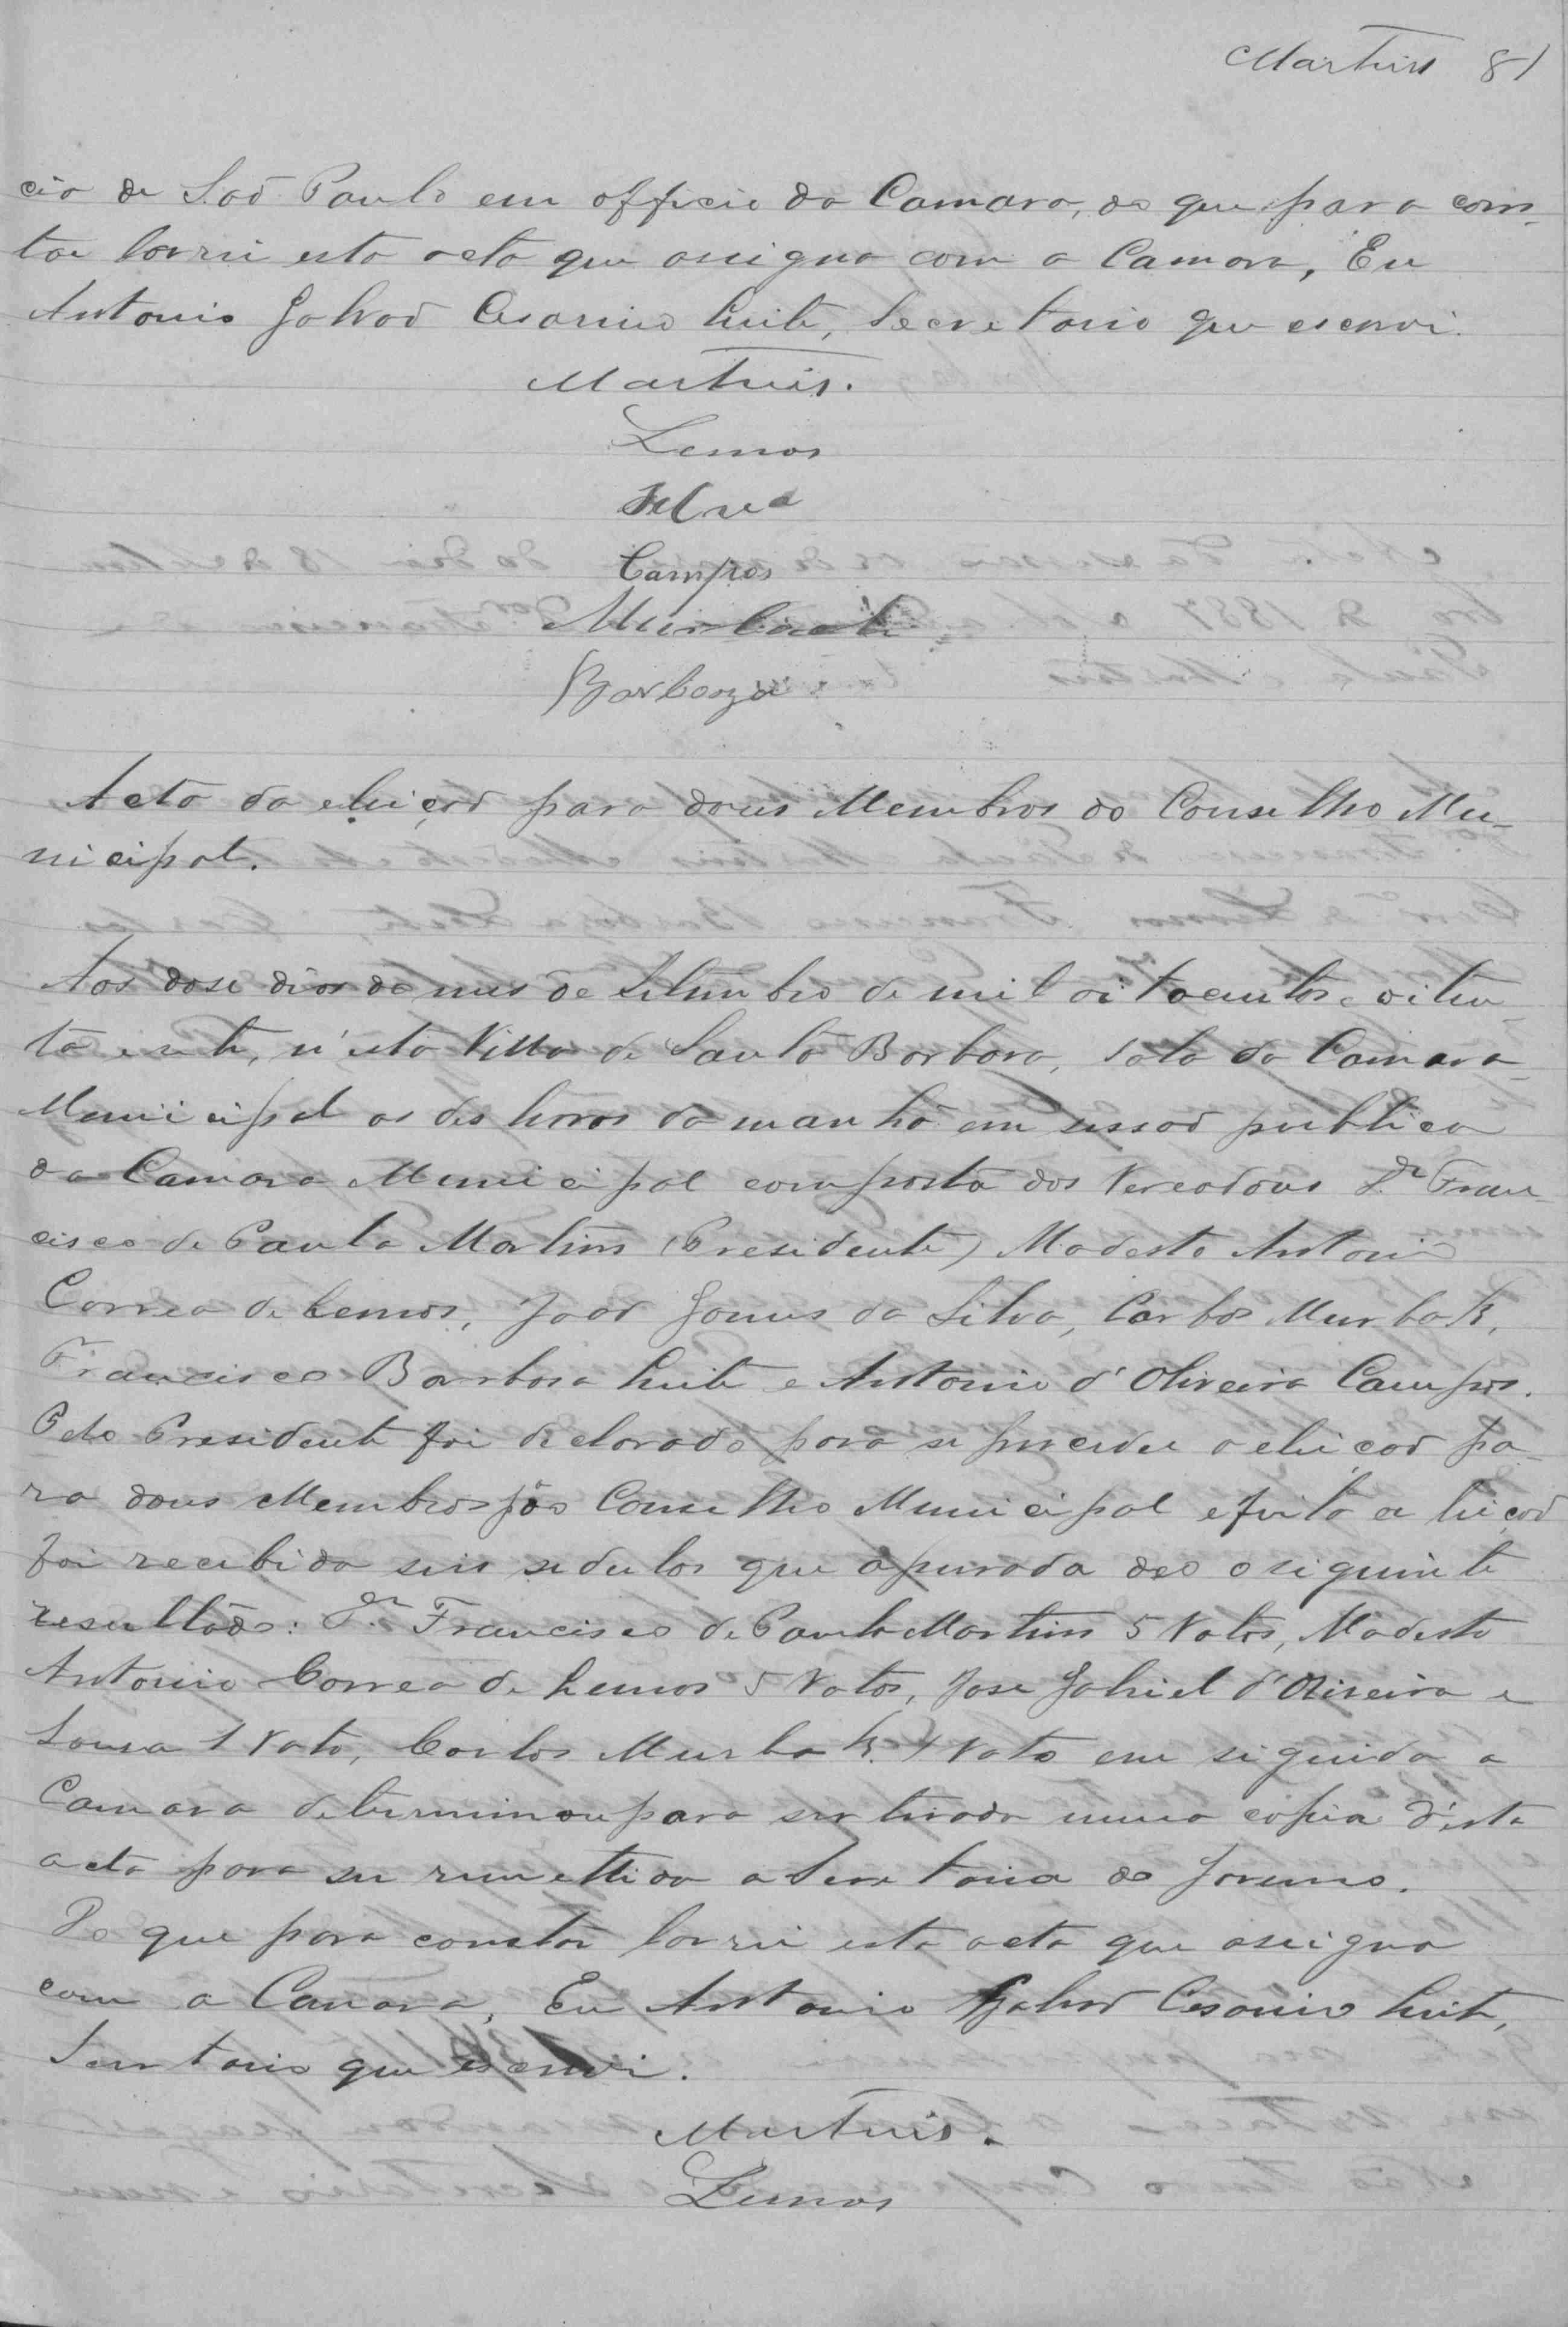 Martins 81
cia de Saõ Paulo em officio da Camara, do que para cons-
tar lavrei esta acta que assigna com a Camara, Eu
Antonio Galvaõ Cesarino Leite, Secretario que escrevi.
Martins.
Lemos
Silva
Campos
Murbach
Barboza
Acta da eleiçaõ para dous Membros do Conselho Mu-
nicipal.
Aos dose dias do mes de Setembro de mil oitocentos e oiten-
ta e sete, n'esta Villa de Santa Barbara, sala da Camara
Municipal as des horas da manhã em sessaõ publica
da Camara Municipal composta dos Vereadores Dr Fran
cisco de Paula Martins (Presidente) Modesto Antonio
Correa de Lemos, Joaõ Gomes da Silva, Carlos Murbak,
Francisco Barbosa Leite e Antonio d'Oliveira Campos.
Pelo Presidente foi declarado para se proceder a eleiçaõ pa-
ra dous Membros do Conselho Municipal e feita a eleiçaõ
foi recebida seis sedulas que apurada deo o siguinte
resultado: Dr. Francisco de Paula Martins 5 Votos, Modesto
Antonio Correa de Lemos 5 Votos, Jose Gabriel d'Oliveira e
Sousa 1 Voto, Carlos Murbak. 1 Voto em siguida a
Camara determinou para ser tirada uma copia d'esta
acta para ser remettida a Secretaria do Governo.
Do que para constar lavrei esta acta que assigna
com a Camara, Eu Antonio Galvaõ Cesarino Leite,
Secretario que escrevi.
Martins.
Lemos